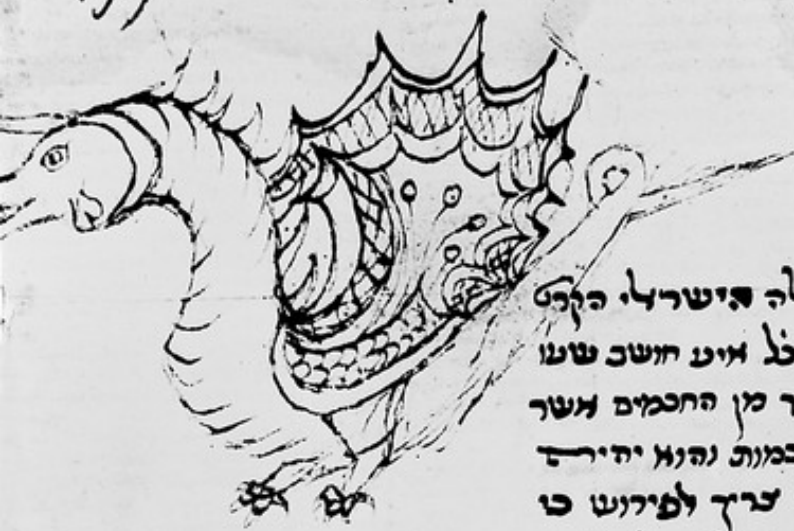 לה הישראלי הקרט
כל איש חושב שעו
ך מן החכמים אשר
כמות והוא יהיה
צריך לפירוש כו